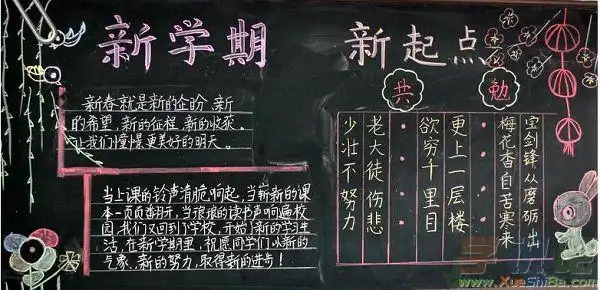 新学期 新起点
新春就是新的企盼,新
的希望,新的征程,新的收获。
让我们憧憬更美好的明天。
当上课的铃声清脆响起,当崭新的课
本一页页翻开,当琅琅的读书声响遍校
园,我们又回到了学校,开始了新的学习生
活,在新学期里,祝愿同学们以新的
气象,新的努力,取得新的进步!
共勉
少壮不努力
老大徒伤悲
欲穷千里目
更上一层楼
梅花香自苦寒来
宝剑锋从磨砺出
www.XueShiBa.com